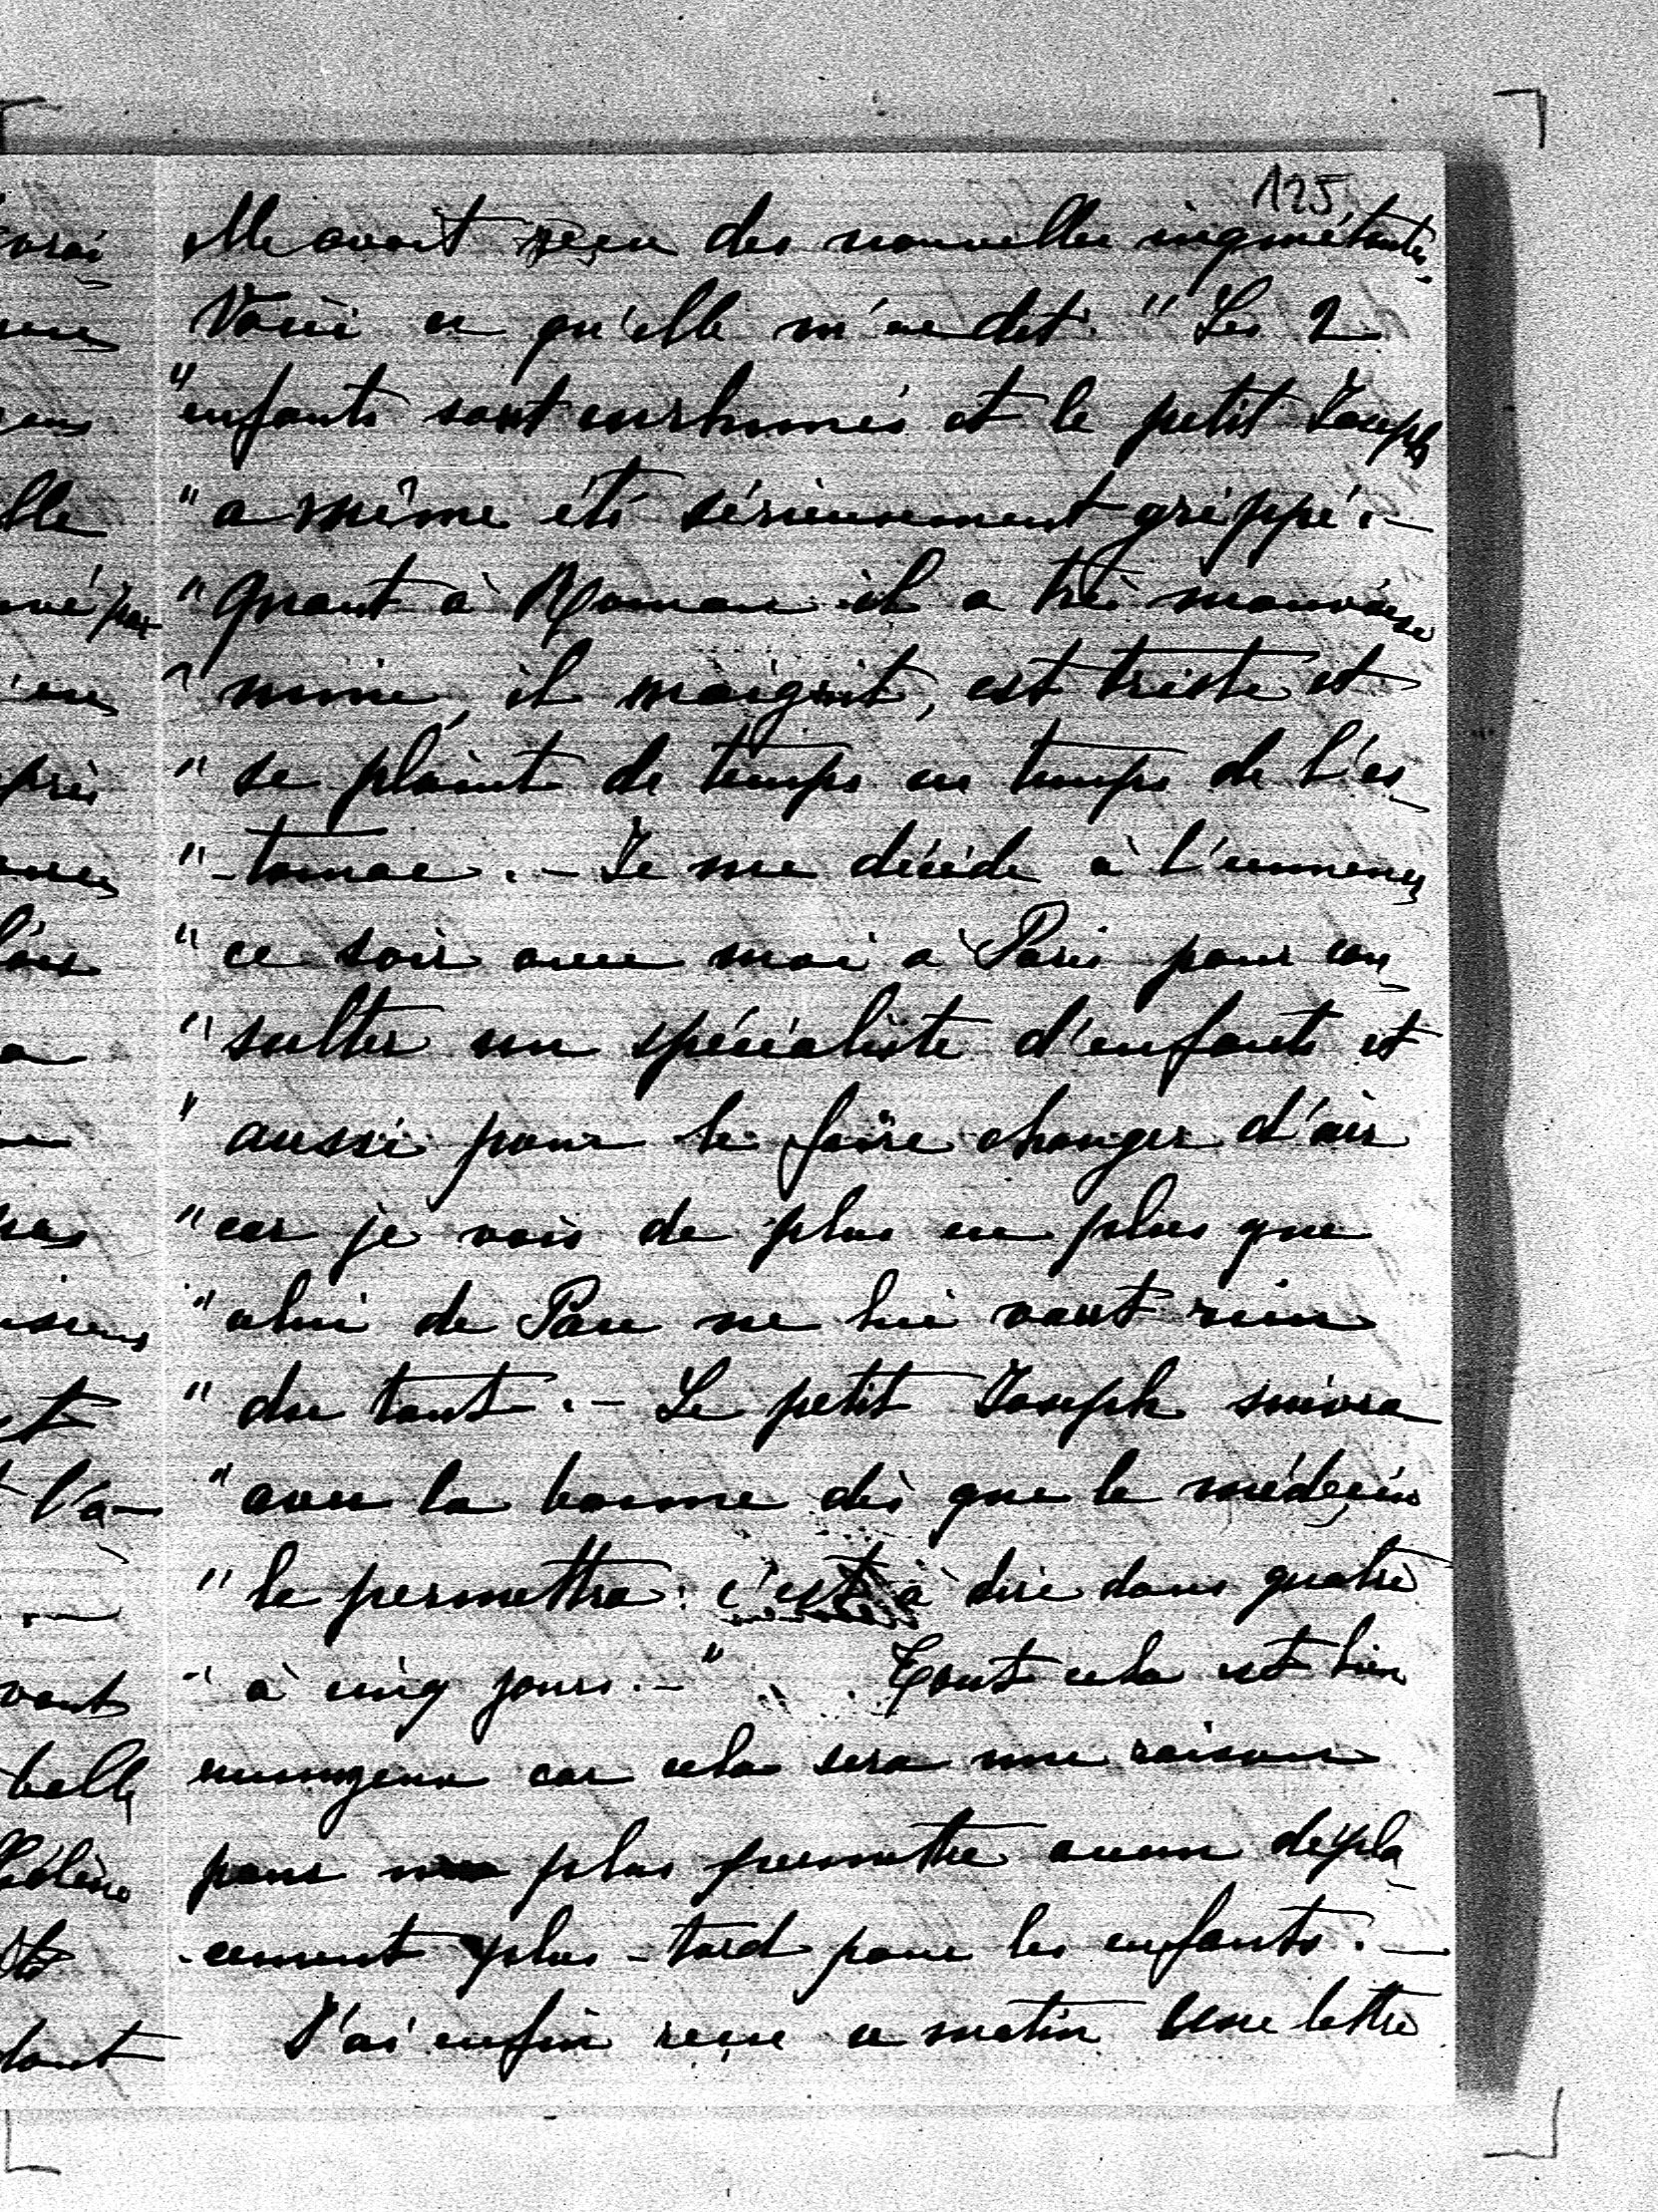 125
elle avait reçu des nouvelles inquiétantes.
Voici ce qu'elle m'en dit: "Les 2
"enfants sont enrhumés et le petit Joseph
"a même été sérieusement grippé. -
"Quant à Roman il a très mauvaise
"mine, il maigrit, est triste et
"se plaint de temps en temps de l'es-
"-tomac. - Je me décide à l'emmener
"ce soir avec moi à Paris pour con-
"sulter un spécialiste d'enfants et
"aussi pour le faire changer d'air
"car je vois de plus en plus que
"celui de Pau ne lui vaut rien
"du tout. - Le petit Joseph suivra
"avec la bonne dès que le médecin
"le permettra: c'est à dire dans quatre
"à cinq jours. -" Tout cela est bien
ennuyeux car cela sera une raison
pour ne plus permettre aucun dépla-
-cement plus-tard pour les enfants. -
J'ai enfin reçu ce matin une lettre
vrai
elle
par
près
a
pas
et
l'a-
belle
Hélène
dont